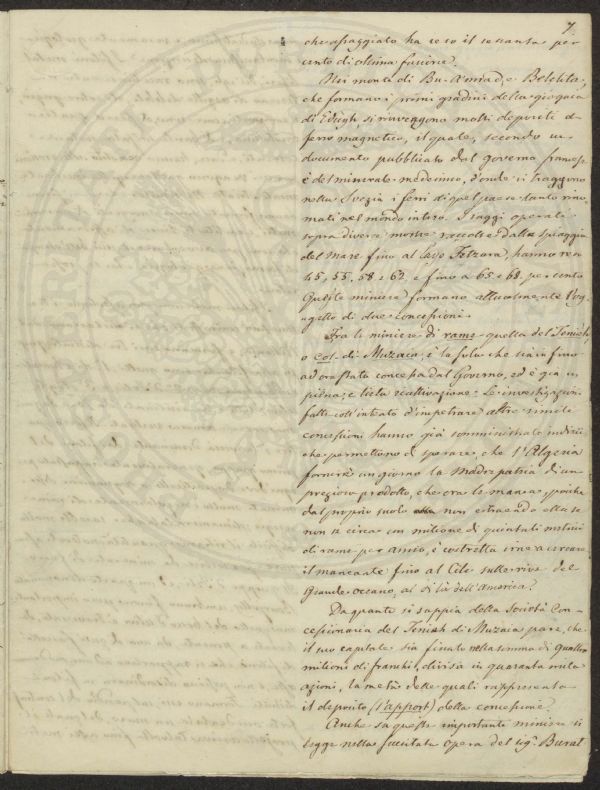 7.
che assaggiato ha reso il sessanta per
cento di ottima fusione.
Nei monti di Bu-Amrad, e Belelita,
che formano i primi gradini della giogaia
di Edugh, si rinvengono molti depositi di
ferro magnetico, il quale, secondo un
documento pubblicato dal governo francese
è del minerale medesimo, d'onde si traggono
nella Svezia i ferri di quel paese tanto rino-
mati nel mondo intero. I saggi operati
sopra diverse mostre raccolte dalla spiaggia
del mare fino al lago Fetzara, hanno reso
45, 55, 58 e 62, e fino a 65 e 68 per cento
Queste miniere formano attualmente l'og-
getto di due concessioni.
Fra le miniere di rame quella del Teniah,
o col di Muzaia, è la sola che sia in fino
ad ora stata concessa dal Governo, ed è già in
piena, e lieta coltivazione. Le investigazioni
fatte coll'intento d'impetrare altre simili
concessioni hanno già somministrato indizi
che permettono di sperare, che l'Algeria
fornirà un giorno la madre patria di un
prezioso prodotto, che ora le manca, poichè
dal proprio suolo non estraendo ella se
non se circa un milione di quintali metrici
di rame per anno, è costretta irne a cercare
il mancante fino al Cile sulle rive del
Grande Oceano, al di là dell'America.
Da quanto si sappia della Società Con-
cessionaria del Teniah di Muzaia pare, che
il suo capitale sia fissato nella somma di quattro
milioni di franchi, divisa in quaranta mila
azioni, la metà delle quali rappresenta
il deposito (l'apport) della concessione.
Anche su questa importante miniera si
legge nella succitata opera del sigr. Burat